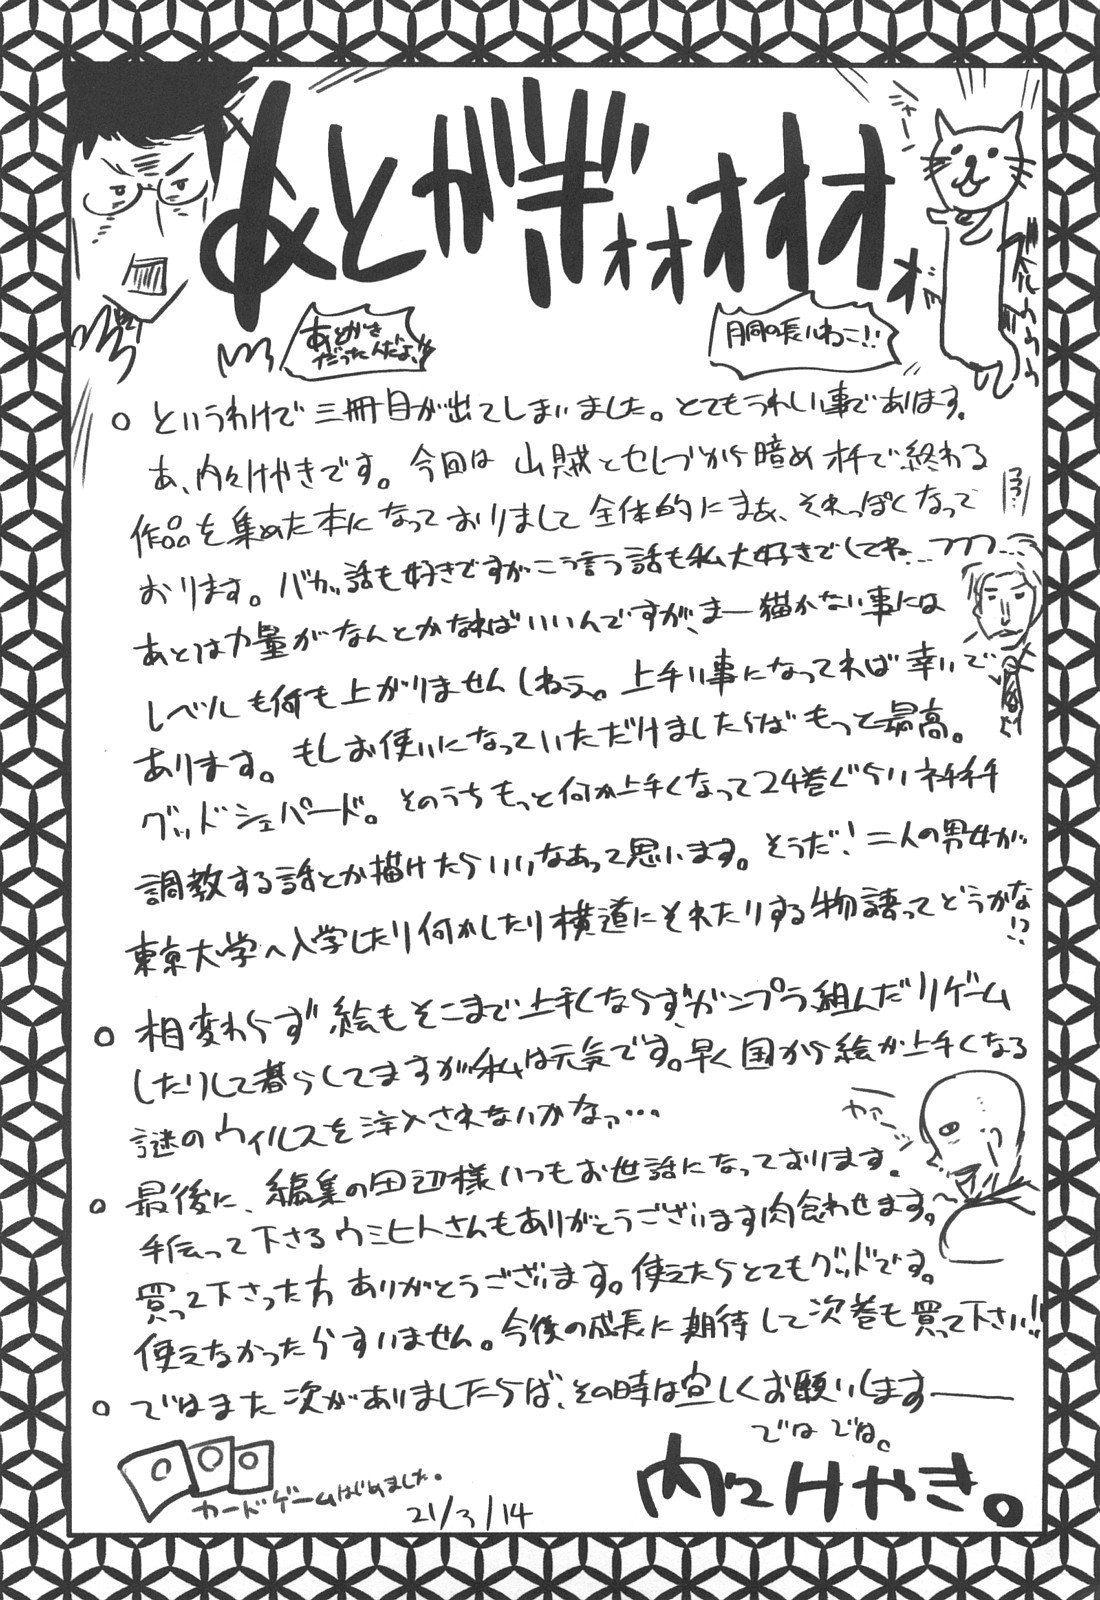 あとがぎォォオオオ
オッ
ギャー
あとがき
だったんだよ!!
胴の長いねこ!!
○ というわけで三冊目が出てしまいました。とてもうれしい事であります。
あ、内々けやきです。今回は山賊とセレブから暗めオチで終わる
作品を集めた本になっておりまして全体的にまぁ、それっぽくなって
おります。バカ話も好きですがこう言う話も私大好きでしてね…フフフ…
あとは力量がなんとかなればいいんですが、まー描かない事には
レベルも何も上がりませんしねぇ。上手い事になってれば幸いで
あります。もしお使いになっていただけましたらばもっと最高。
グッドシェパード。そのうちもっと何か上手くなって24巻ぐらいネチネチ
調教する話とか描けたらいいなあって思います。そうだ!二人の男女が
東京大学へ入学したり何かしたり横道にそれたりする物語ってどうかな!?
○ 相変わらず絵もそこまで上手くならず、ガンプラ組んだりゲーム
したりして暮らしてますが私は元気です。早く国から絵が上手くなる
謎のウィルスを注入されないかなァ…
○ 最後に、編集の田辺様いつもお世話になっております。
手伝って下さるウミヒトさんもありがとうございます肉食わせます。
買って下さった方ありがとうございます。使えたらとてもグッドです。
使えなかったらすいません。今後の成長に期待して次巻も買って下さい!!
○ ではまた次がありましたらば、その時は宜しくお願いします――
ではでは。
カードゲームはじめました。
21/3/14
内々けやき。